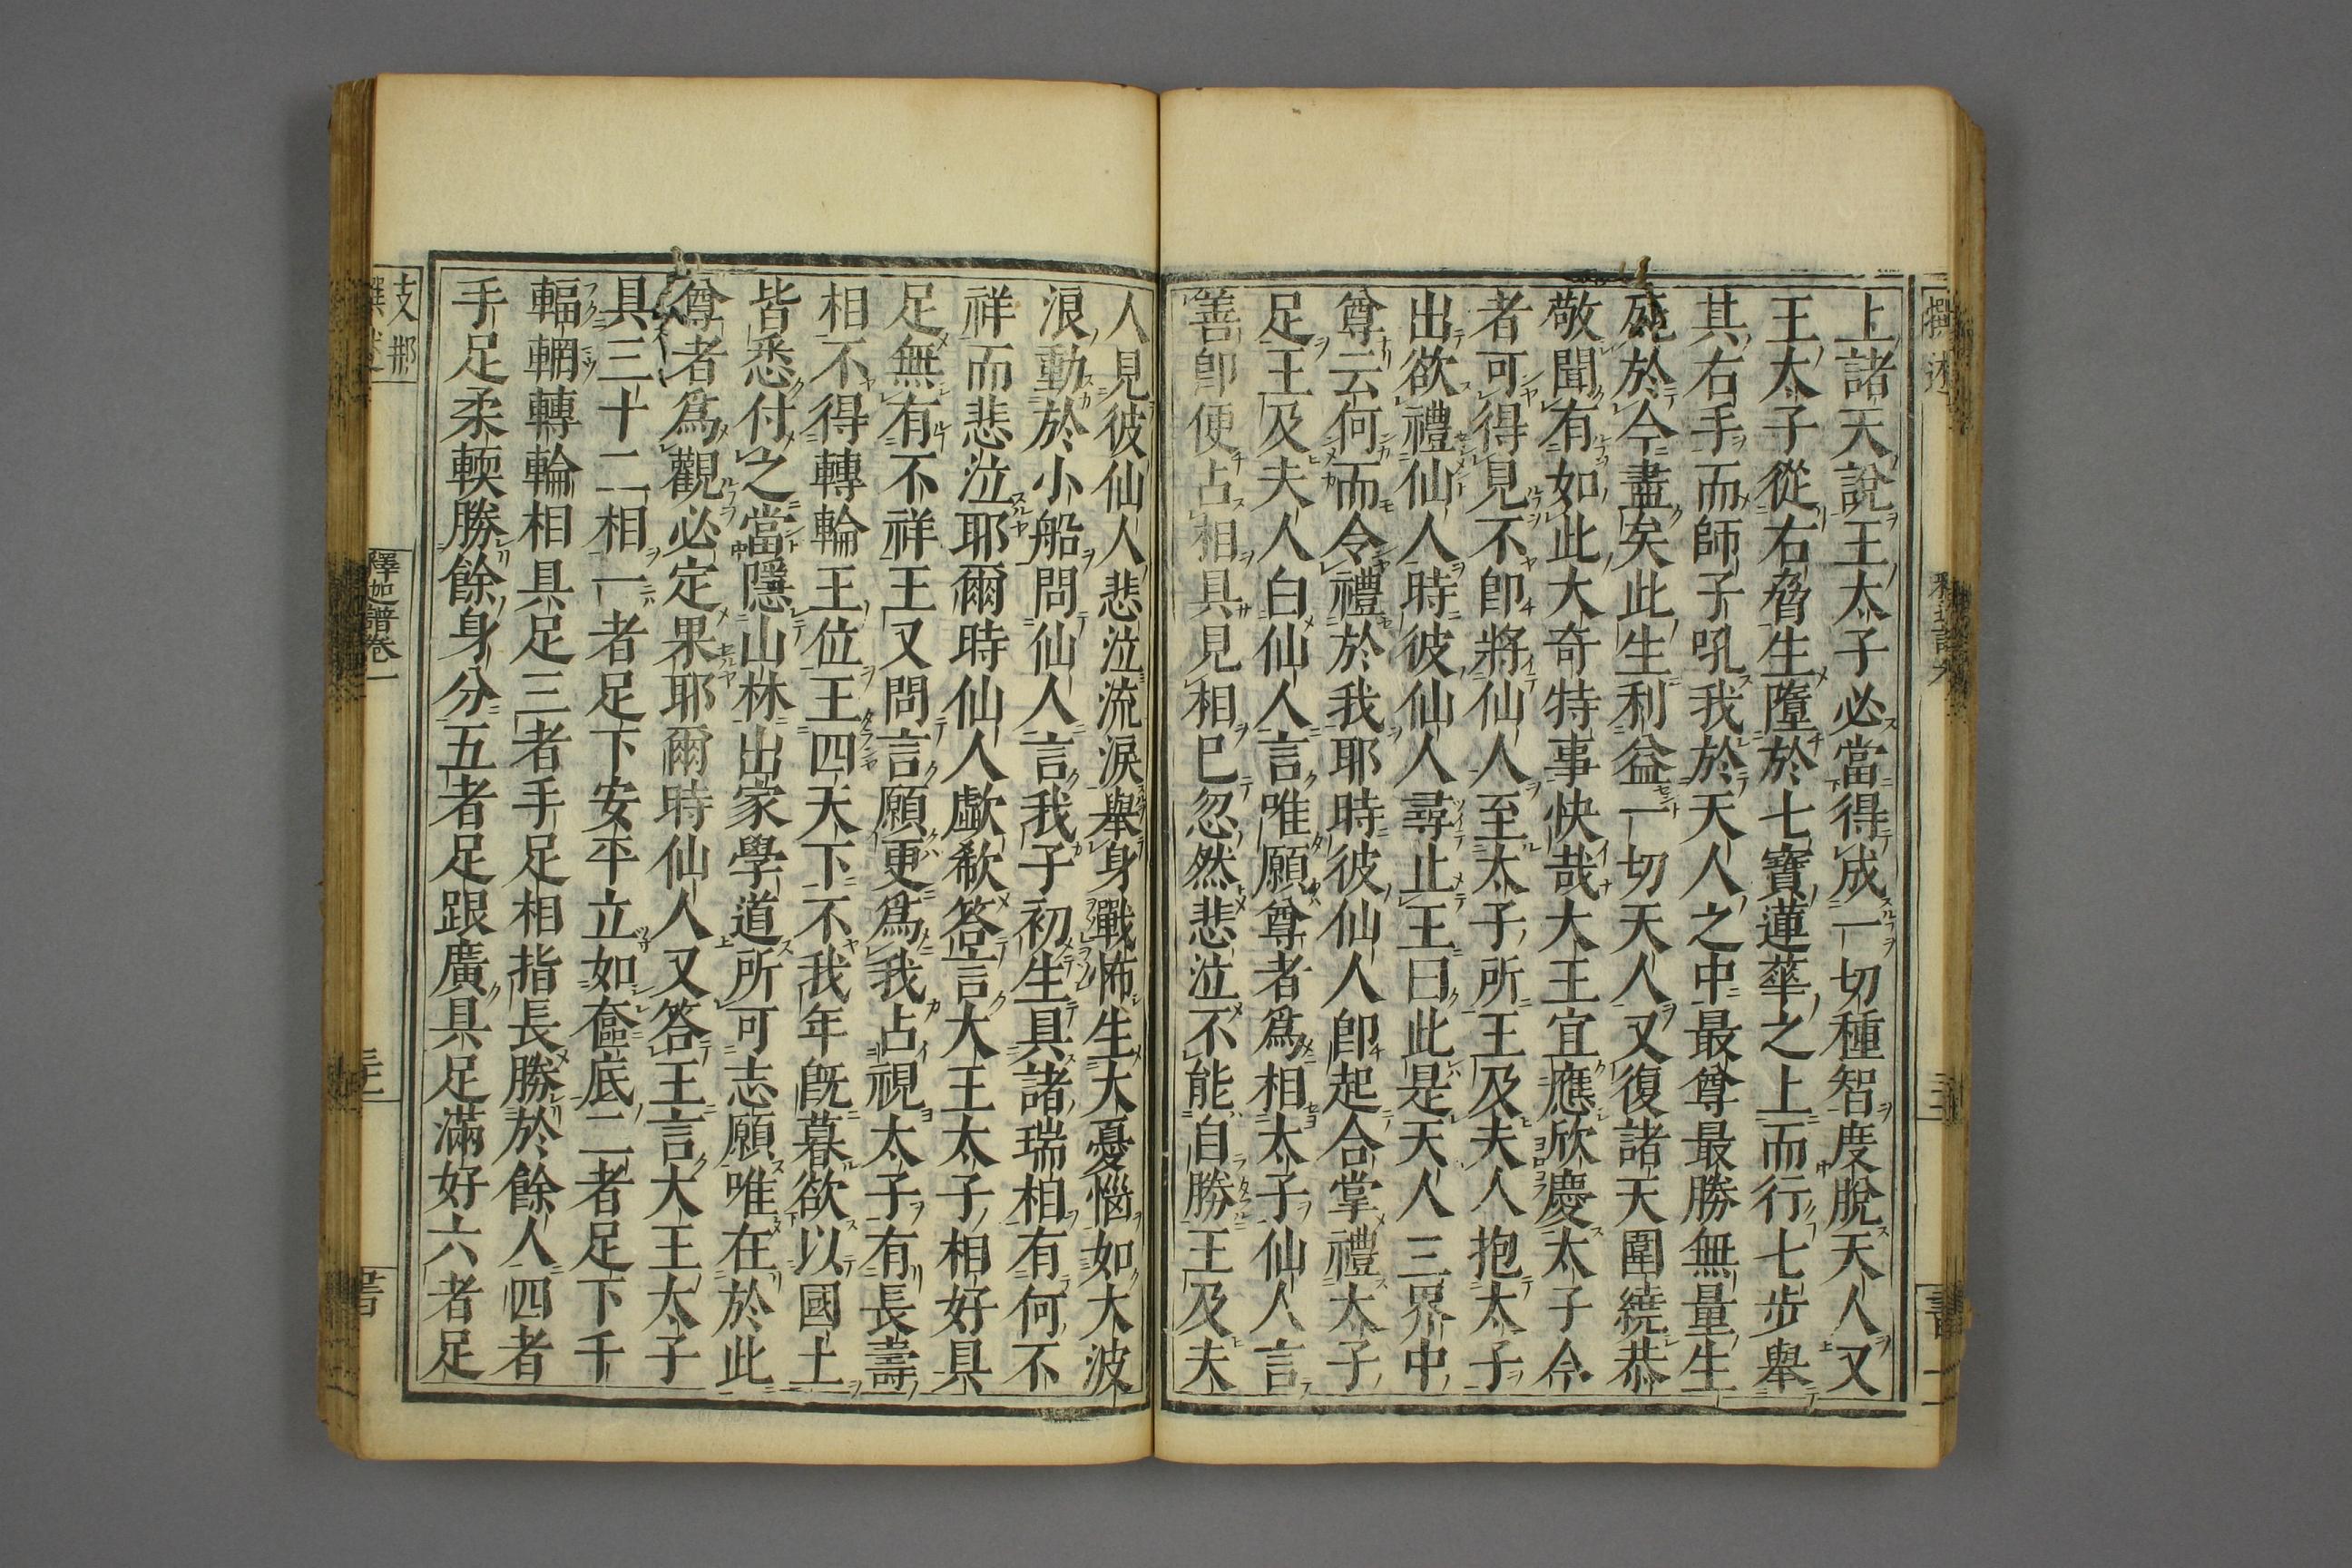 上諸天說王太子必當得成一切種智度脫天人又
王太子從右脅生墮於七寶蓮華之上而行七步舉
其右手而師子吼我於天人之中最尊最勝無量生
死於今盡矣此生利益一切天人又復諸天圍繞恭
敬聞有如此大奇特事快哉大王宜應欣慶太子今
者可得見不卽將仙人至太子所王及夫人抱太子
出欲禮仙人時彼仙人尋止王曰此是天人三界中
尊云何而令禮於我耶時彼仙人卽起合掌禮太子
足王及夫人白仙人言唯願尊者爲相太子仙人言
善卽便占相具見相已忽然悲泣不能自勝王及夫
人見彼仙人悲泣流淚舉身戰怖生大憂惱如大波
浪動於小船問仙人言我子初生具諸瑞相有何不
祥而悲泣耶爾時仙人歔欷答言大王太子相好具
足無有不祥王又問言願更爲我占視太子有長壽
相不得轉輪王位王四天下不我年旣暮欲以國土
皆悉付之當隱山林出家學道所可志願唯在於此
尊者爲觀必定果耶爾時仙人又答王言大王太子
具三十二相一者足下安平立如奩底二者足下千
輻輞轉輪相具足三者手足相指長勝於餘人四者
手足柔輭勝餘身分五者足跟廣具足滿好六者足
支那
撰述
釋迦譜卷一